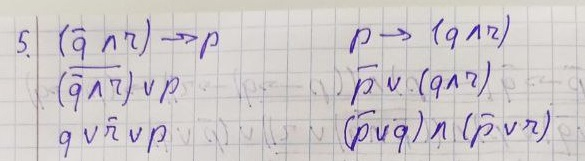 5. (q̅ ∧ r) → p p → (q ∧ r)
(q̅ ∧ r)̅ ∨ p p̅ ∨ (q ∧ r)
q ∨ r̅ ∨ p (p̅ ∨ q) ∧ (p̅ ∨ r)